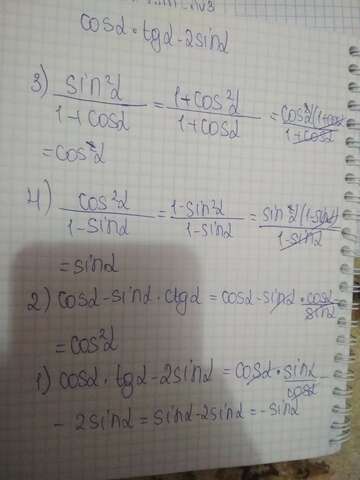 cosα · tgα - 2sinα
3) sin²α / 1+cosα = 1+cos²α / 1+cosα = cos²α(1+cosα) / 1+cosα
= cos²α
4) cos²α / 1-sinα = 1-sin²α / 1-sinα = sin²α(1-sinα) / 1-sinα
= sinα
2) cosα - sinα · ctgα = cosα - sinα · cosα / sinα
= cos²α
1) cosα · tgα - 2sinα = cosα · sinα / cosα
- 2sinα = sinα - 2sinα = -sinα